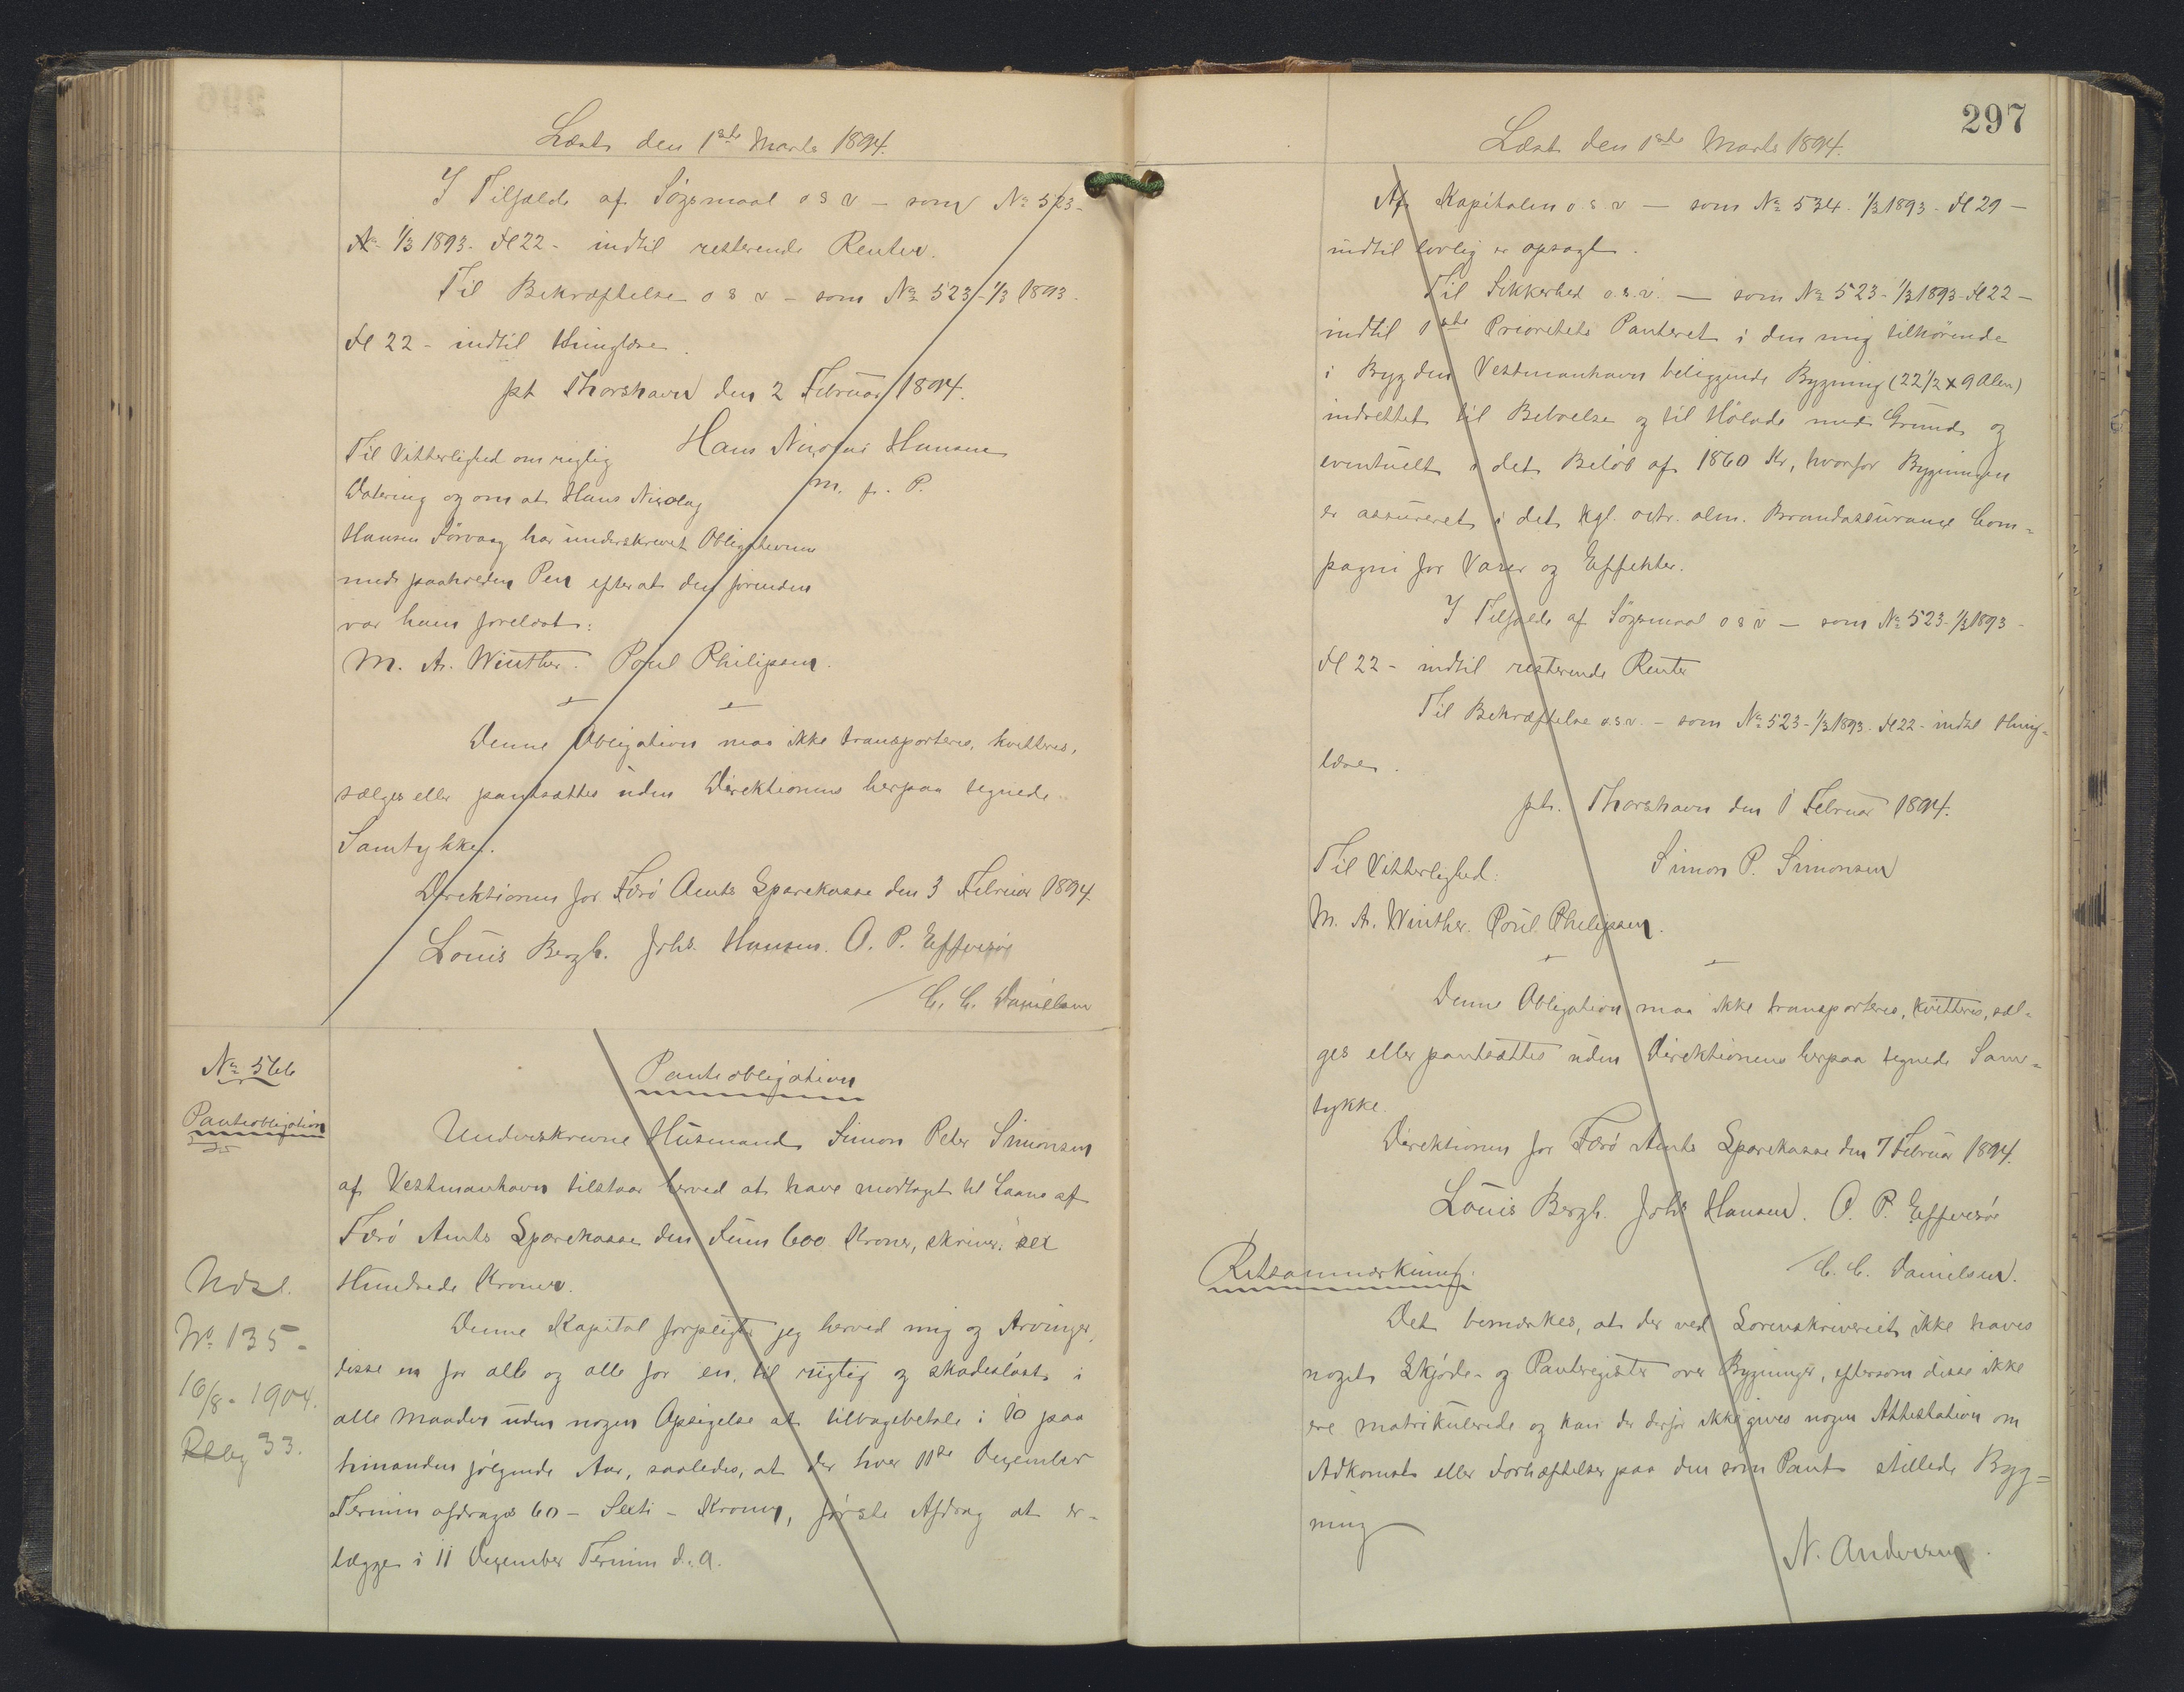 Læst den 1ste Marts 1894.
I Tilfælde af Søgsmaal o s v - som No 523-
1/3 1893. Fl 22 - indtil resterende Renter.
Til Bekræftelse o s v - som No 523 - 1/3 1893.
Fl 22 - indtil thinglæse.
pt Thorshavn den 2 Februar 1894.
Hans Nicolai Hansen
m. f. P.
Til Vitterlighed om rigtig
Datering og om at Hans Nicolay
Hansen Sørvaag har underskrevet Obligationen
med paaholden Pen efter at den forinden
var ham forelæst:
M. A. Winther. Poul Philipsen.
Denne Obligation maa ikke transporteres, kvitteres,
sælges eller pantsættes uden Direktionens herpaa tegnede
Samtykke.
Direktionen for Færø Amts Sparekasse den 3 Februar 1894.
Louis Bergh. Johs. Hansen. O. P. Effersøe
C. C. Danielsen
No 566
Panteobligation
Panteobligation
Underskrevne Husmand Simon Peter Simonsen
af Vestmanhavn tilstaar herved at have modtaget til Laans af
Færø Amts Sparekasse den Sum 600 Kroner, skriver: sex
Hundrede Kroner.
Denne Kapital forpligter jeg herved mig og Arvinger,
disse en for alle og alle for en, til rigtig og skadesløst i
alle Maader uden nogen Opsigelse at tilbagebetale i 10 paa
hinanden følgende Aar, saaledes, at der hver 11te Dezember
Termin afdrages 60 - Sexti - Kroner, første Afdrag at er-
lægge i 11 Dezember Termin d. A.
Udsl.
No 135 -
16/8 - 1904.
33.
297
Læst den 1ste Marts 1894.
Af Kapitalen o s v - som No 534. 1/3 1893. Fl 29 -
indtil lovlig er opsagt.
Til Sikkerhed o.s.v. - som No 523 - 1/3 1893 - Fl 22 -
indtil 1ste Prioritets Panteret i den mig tilhørende
i Bygden Vestmanhavn beliggende Bygning (22 1/2 x 9 Alen)
indrettet til Beboelse og til Hølade med Grund og
eventuelt i det Beløb af 1860 Kr, hvorfor Bygningen
er assureret i det kgl. octr. alm. Brandassurance Com-
pagni for Varer og Effekter.
I Tilfælde af Søgsmaal o s v - som No 523 - 1/3 1893 -
Fl 22 - indtil resterende Renter
Til Bekræftelse o.s.v. - som No 523 - 1/3 1893. Fl 22 - indtil thing-
læses.
pt. Thorshavn den 1 Februar 1894.
Til Vitterlighed: Simon P. Simonsen
M. A. Winther. Poul Philipsen.
Denne Obligation maa ikke transporteres, kvitteres, sæl-
ges eller pantsættes uden Direktionens herpaa tegnede Sam-
tykke.
Direktionen for Færø Amts Sparekasse den 7 Februar 1894.
Louis Bergh. Johs Hansen. O. P. Effersøe
C. C. Danielsen.
Retsanmærkning.
Det bemærkes, at der ved Sorenskriveriet ikke haves
noget Skjøde- og Panteregister over Bygninger, eftersom disse ikke
ere matrikulerede og kan der derfor ikke gives nogen Attestation om
Adkomst eller Forhæftelser paa den som Pant stillede Byg-
ning
N. Andersen.